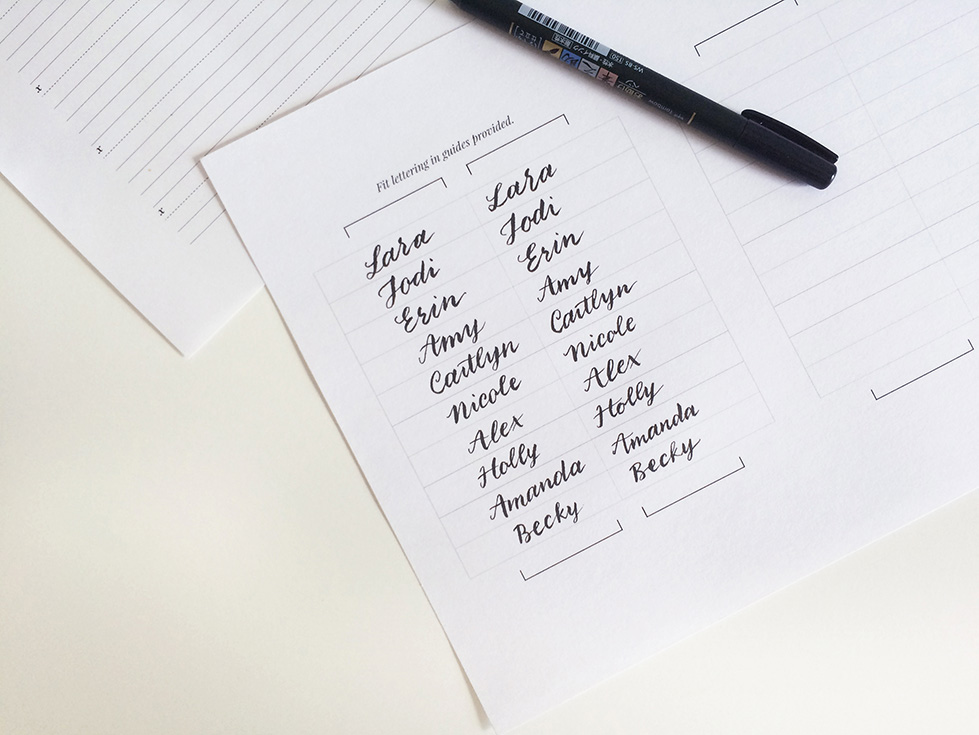 Fit lettering in guides provided.
Lara Lara
Jodi Jodi
Erin Erin
Amy Amy
Caitlyn Caitlyn
Nicole Nicole
Alex Alex
Holly Holly
Amanda Amanda
Becky Becky
x
x
x
WS-BS 150